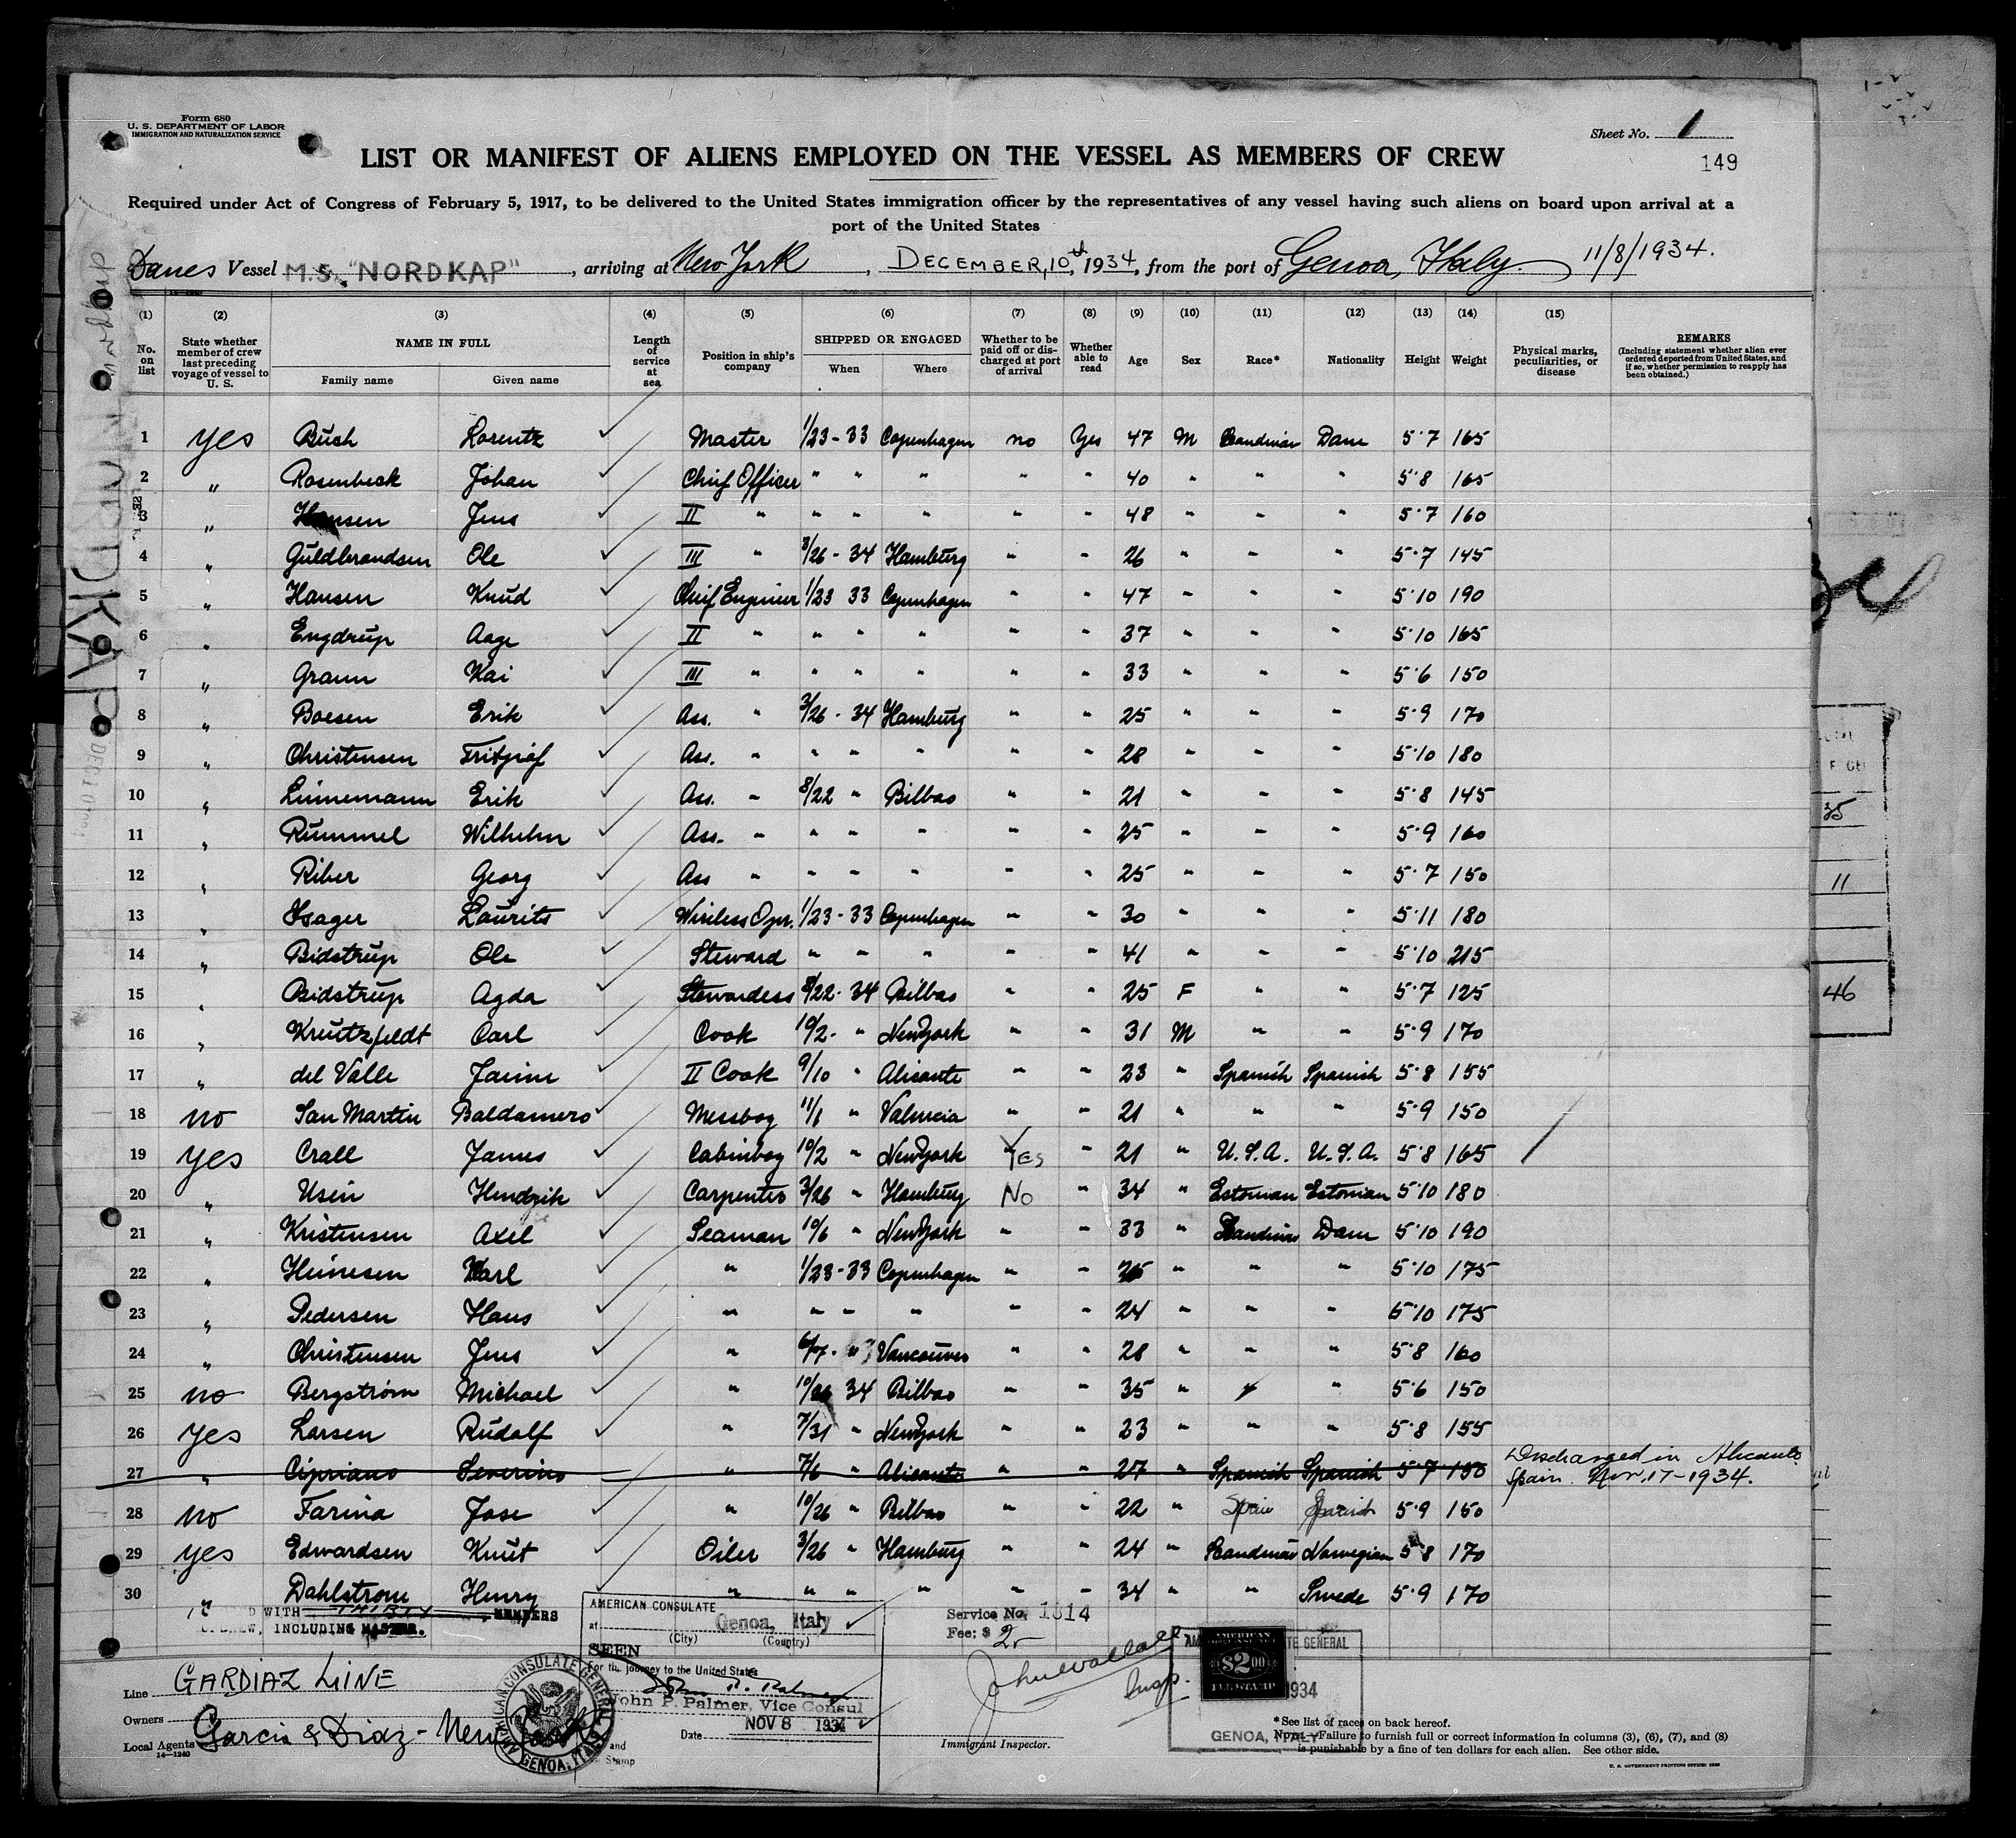 Form 680
U. S. DEPARTMENT OF LABOR
IMMIGRATION AND NATURALIZATION SERVICE
Sheet No. 1
149
LIST OR MANIFEST OF ALIENS EMPLOYED ON THE VESSEL AS MEMBERS OF CREW
Required under Act of Congress of February 5, 1917, to be delivered to the United States immigration officer by the representatives of any vessel having such aliens on board upon arrival at a
port of the United States
Danes Vessel M.S. "NORDKAP", arriving at New York, DECEMBER, 10th, 1934, from the port of Genoa, Italy. 11/8/1934.
(1) (2) (3) (4) (5) (6) (7) (8) (9) (10) (11) (12) (13) (14) (15)
No. on list | State whether member of crew last preceding voyage of vessel to U. S. | NAME IN FULL Family name Given name | Length of service at sea | Position in ship's company | SHIPPED OR ENGAGED When Where | Whether to be paid off or discharged at port of arrival | Whether able to read | Age | Sex | Race* | Nationality | Height | Weight | Physical marks, peculiarities, or disease | REMARKS (Including statement whether alien ever ordered deported from United States, and if so, whether permission to reapply has been obtained.)
1 yes Buch Lorentz ✓ Master 1/23-33 Copenhagen no Yes 47 M Scandinav Dane 5'7 165
2 " Rosenbeck Johan ✓ Chief Officer " " " " " 40 " " " 5'8 165
3 " Hansen Jens ✓ II " " " " " " 48 " " " 5'7 160
4 " Guldbrandsen Ole ✓ III " 3/26-34 Hamburg " " 26 " " " 5'7 145
5 " Hansen Knud ✓ Chief Engineer 1/23 33 Copenhagen " " 47 " " " 5'10 190
6 " Engdrup Aage ✓ II " " " " " " 37 " " " 5'10 165
7 " Grann Kai ✓ III " " " " " " 33 " " " 5'6 150
8 " Boesen Erik ✓ Ass. " 3/26-34 Hamburg " " 25 " " " 5'9 170
9 " Christensen Fritjof ✓ Ass. " " " " " " 28 " " " 5'10 180
10 " Linnemann Erik ✓ Ass. " 8/22 " Bilbao " " 21 " " " 5'8 145
11 " Rummel Wilhelm ✓ Ass. " " " " " " 25 " " " 5'9 160
12 " Riber Georg ✓ Ass " " " " " " 25 " " " 5'7 150
13 " Isager Laurits ✓ Wireless Opr. 1/23-33 Copenhagen " " 30 " " " 5'11 180
14 " Bidstrup Ole ✓ Steward " " " " " 41 " " " 5'10 215
15 " Bidstrup Agda ✓ Stewardess 8/22-34 Bilbao " " 25 F " " 5'7 125
16 " Kreutzfeldt Carl ✓ Cook 10/2- " New York " " 31 M " " 5'9 170
17 " del Valle Jaime ✓ II Cook 9/10 " Alicante " " 23 " Spanish Spanish 5'8 155
18 no San Martin Baldamero ✓ Messboy 11/1 " Valencia " " 21 " " " 5'9 150
19 yes Crall James ✓ Cabinboy 10/2 " New York Yes " 21 " U.S.A. U.S.A. 5'8 165
20 " Usin Hendrik ✓ Carpenter 3/26 " Hamburg No " 34 " Estonian Estonian 5'10 180
21 " Kristensen Axel ✓ Seaman 10/6 " New York " " 33 " Scandinav Dane 5'10 190
22 " Heinesen Karl ✓ " 1/23-33 Copenhagen " " 25 " " " 5'10 175
23 " Pedersen Hans ✓ " " " " " " 24 " " " 5'10 175
24 " Christensen Jens ✓ " 6/7- " Vancouver " " 28 " " " 5'8 160
25 no Bergstrøm Michael ✓ " 10/26 34 Bilbao " " 35 " " " 5'6 150
26 yes Larsen Rudolf ✓ " 7/31 " New York " " 23 " " " 5'8 155
27 " Cipriano Severino " 7/6 " Alicante " " 27 " Spanish Spanish 5'7 150 Discharged in Alicante Spain. Nov. 17-1934.
28 no Farina Jose ✓ " 10/26 " Bilbao " " 22 " Spain Spanish 5'9 150
29 yes Edwardsen Knut ✓ Oiler 3/26 " Hamburg " " 24 " Scandinav Norwegian 5'8 170
30 " Dahlstrom Henry ✓ " " " " " " 34 " " Swede 5'9 170
WITH THIRTY MEMBERS
CREW, INCLUDING MASTER.
AMERICAN CONSULATE
at Genoa, Italy
(City) (Country)
SEEN
For the journey to the United States
John P. Palmer
John P. Palmer, Vice Consul
Date NOV 8 1934
and
Stamp
AMERICAN CONSULATE GENERAL GENOA, ITALY
Service No. 1814
Fee: $ 2
John Wallace
Insp.
Immigrant Inspector.
AMERICAN CONSULATE GENERAL
AMERICAN
$2.00
FEE STAMP
1934
GENOA, ITALY
Line GARDIAZ LINE
Owners
Local Agents Garcia & Diaz - New York
14-1240
*See list of races on back hereof.
NOTE.—Failure to furnish full or correct information in columns (3), (6), (7), and (8)
is punishable by a fine of ten dollars for each alien. See other side.
U. S. GOVERNMENT PRINTING OFFICE: 1933
NORDKAP
DEC 10 1934
35
11
46